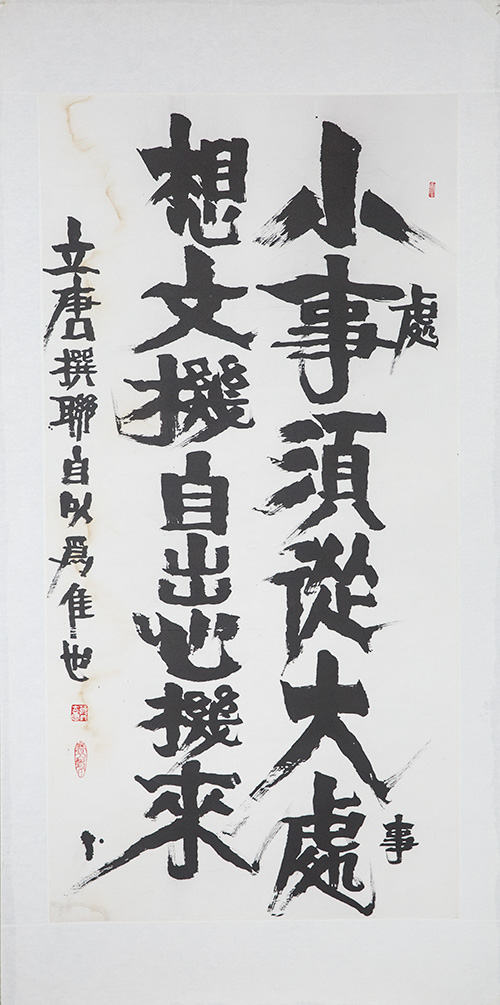 小事須從大處
處
事
想文機自出心機來
立唐撰聯自以爲佳也